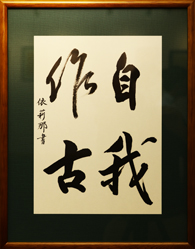 自我
作古
依莉娜書